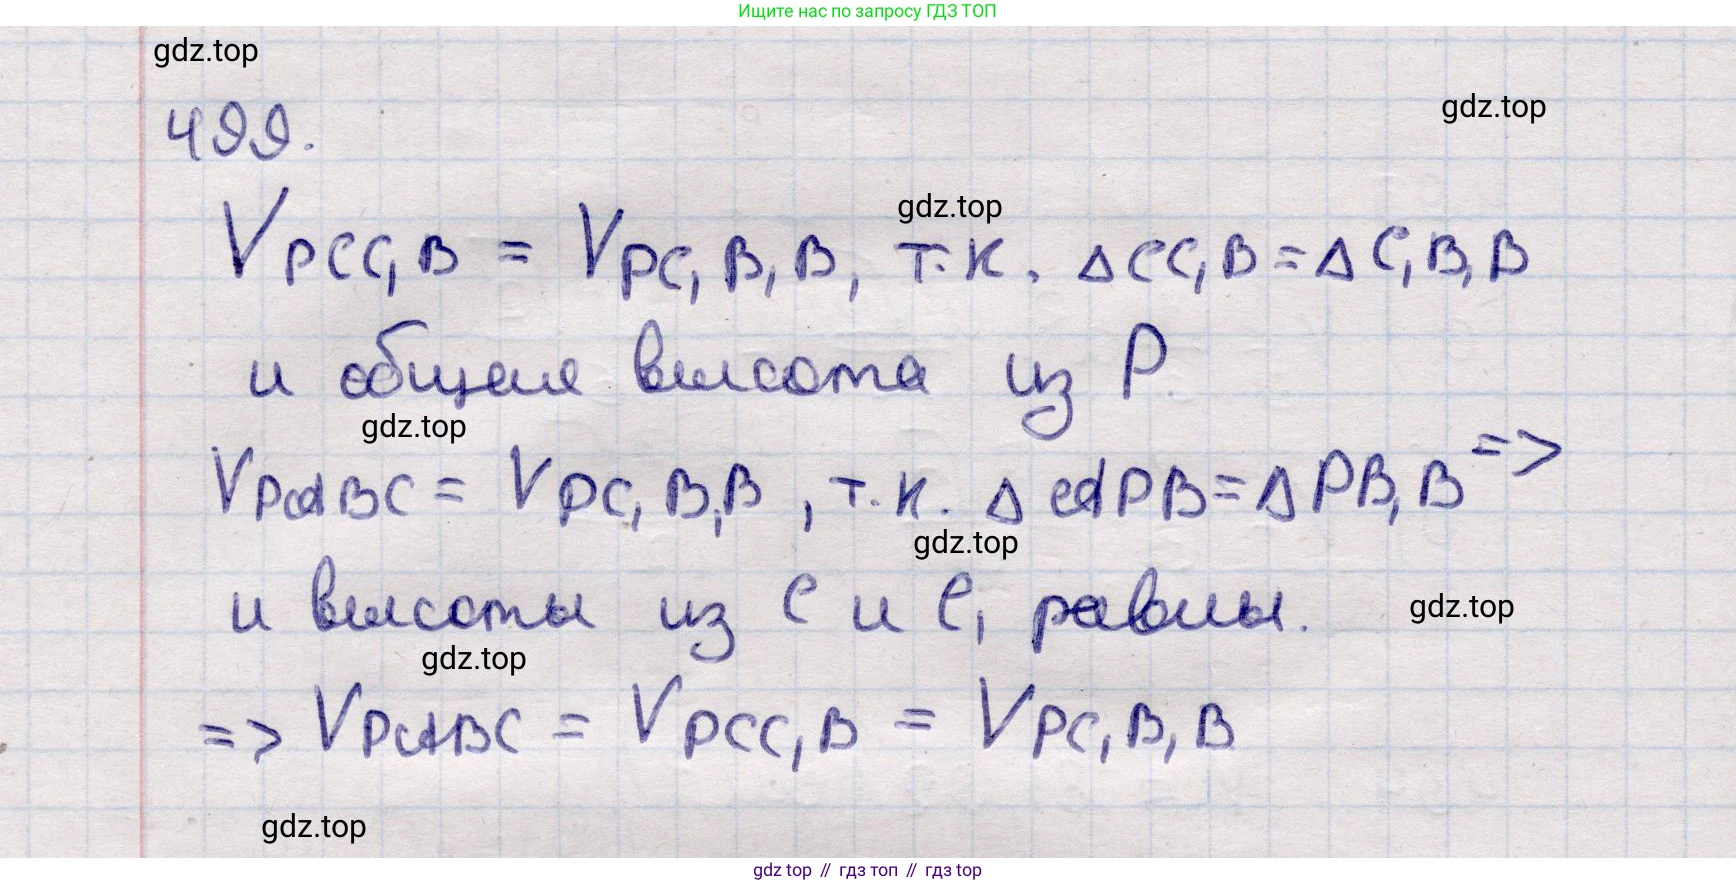 Ищите нас по запросу ГДЗ ТОП
gdz.top
gdz.top
499.
gdz.top
V PCC₁B = V PC₁B₁B, т.к. ΔCC₁B = ΔC₁B₁B
и общая высота из P.
gdz.top
V PABC = V PC₁B₁B, т.к. ΔAPB = ΔPB₁B =>
gdz.top
и высоты из C и C₁ равны.
gdz.top
gdz.top
=> V PABC = V PCC₁B = V PC₁B₁B
gdz.top
gdz top // гдз топ // гдз top